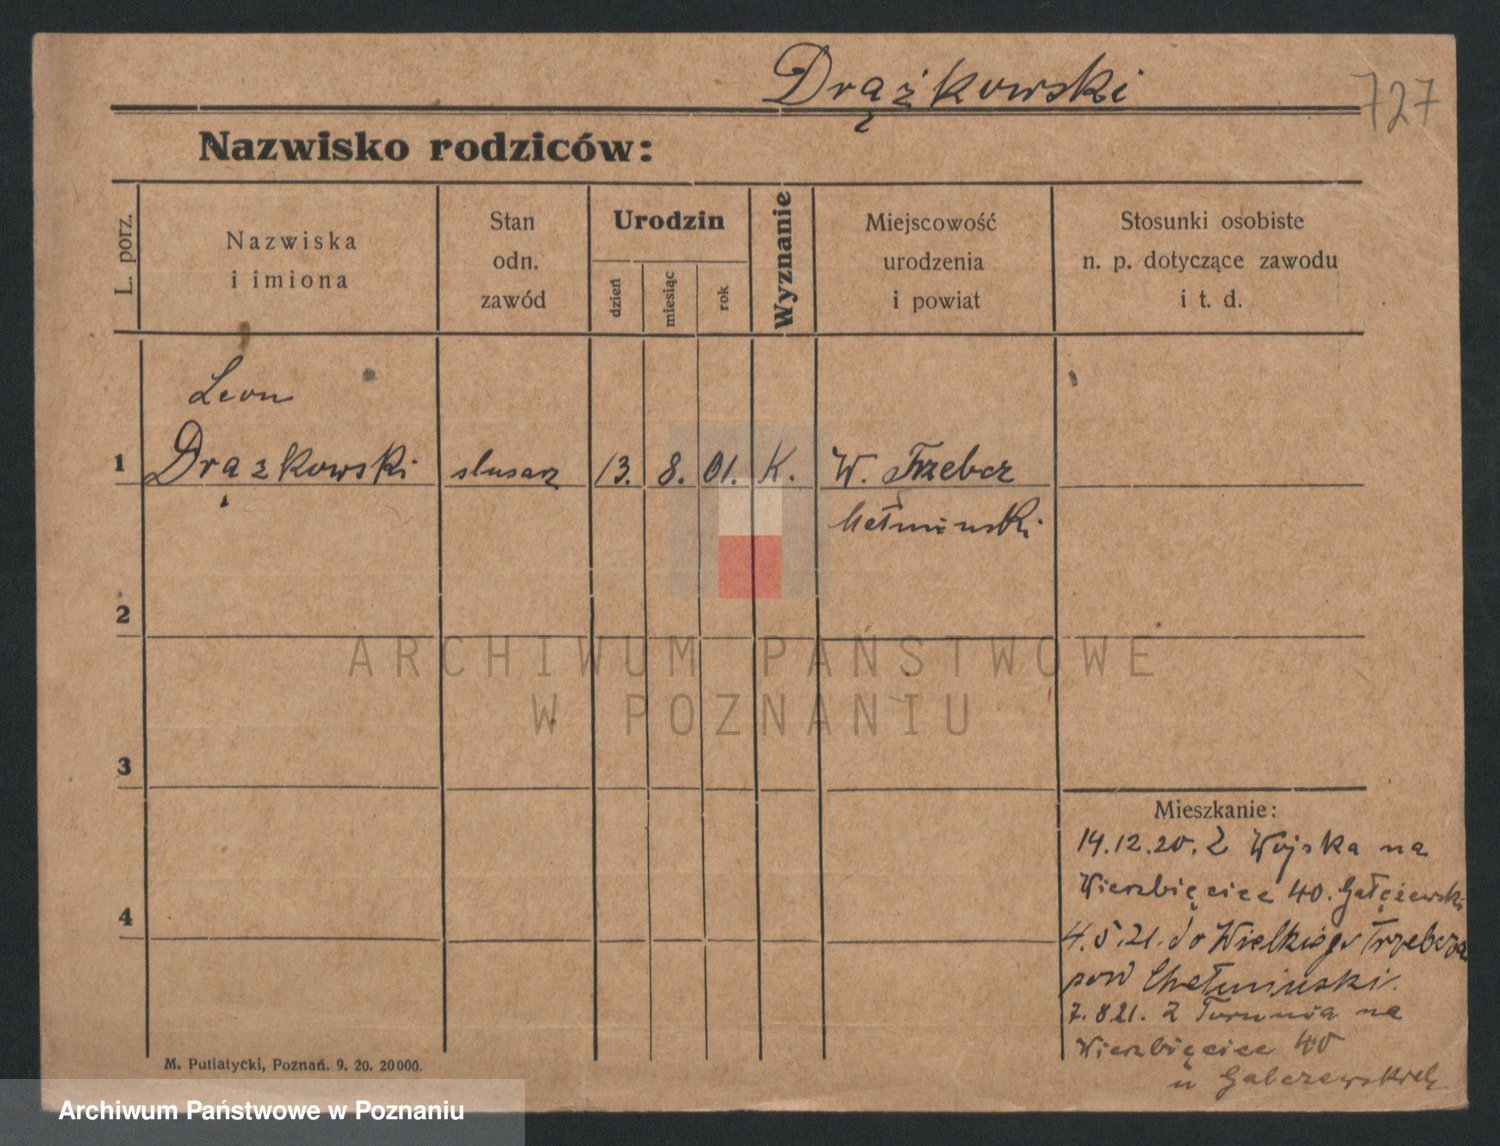 Drążkowski
727
Nazwisko rodziców:
L. porz.
Nazwiska
i imiona
Stan
odn.
zawód
Urodzin
dzień
miesiąc
rok
Wyznanie
Miejscowość
urodzenia
i powiat
Stosunki osobiste
n. p. dotyczące zawodu
i t. d.
Leon
1 Drążkowski slusarz 13. 8. 01. K. W. Trzebcz
2
ARCHIWUM PAŃSTWOWE
W POZNANIU
3
Mieszkanie:
14.12.20. Z Wojska na
Wierzbięcice 40. Gałężewski
4
4.5.21. do Wielkiego Trzebcza
pow Chełmiński.
7.8.21. z Torunia na
Wierzbięcice 40
u
M. Putiatycki, Poznań. 9. 20. 20000.
Archiwum Państwowe w Poznaniu